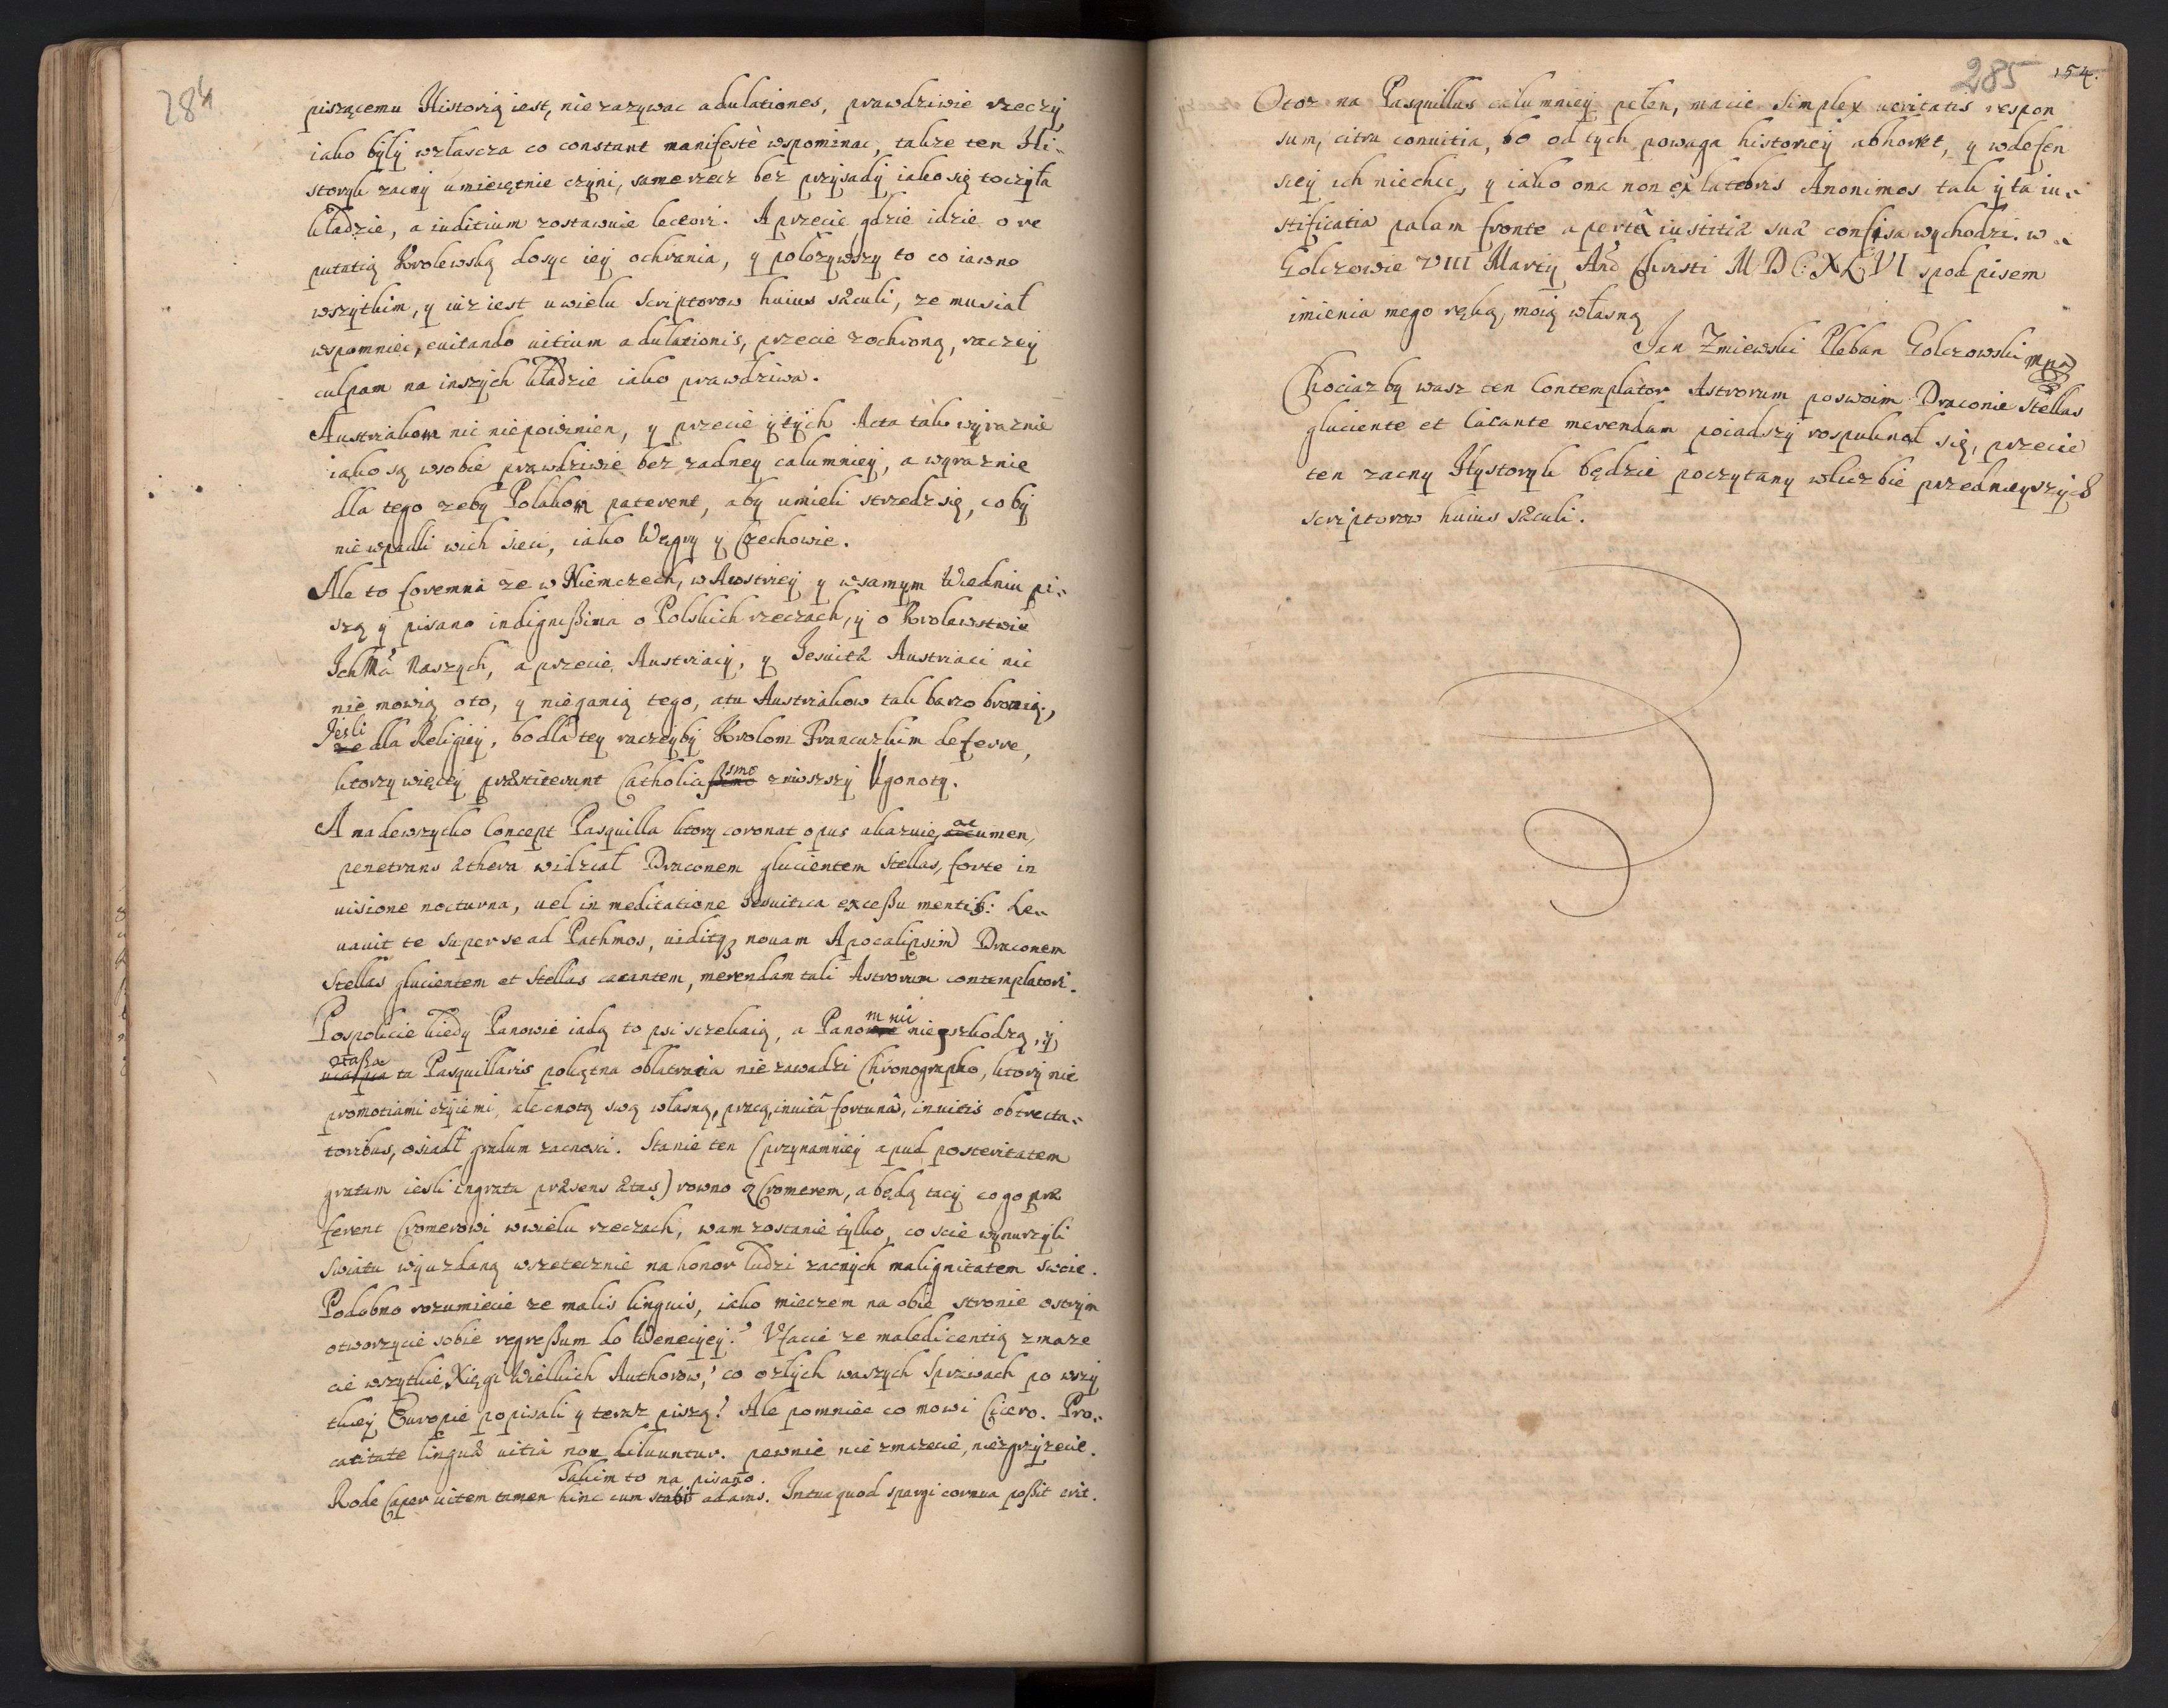 284
piszącemu Historią iest, nie zazywac adulationes, prawdziwie rzeczy
iako były wzłascza co constant manifestè wspominac, takze ten Hi-
storyk zacny umieiętnie czyni, same rzecz bez przysady iako się toczyła
kładzie, a iuditium zostawuie lectori. A przecie gdzie idzie o re
putatią Krolewską dosyc iey ochrania, y położywszy to co iawno
wszytkim, y iuz iest u wielu Scriptorow huius sæculi, ze musiał
wspomniec, euitando uitium adulationis, przecie zochroną, raczey
culpam na inszych kładzie iako prawdziwa.
Austriakom nic niepowinien, y przecie y tych Acta tak wyraznie
iako są wsobie prawdziwie bez zadney calumniey, a wyraznie
dla tego zeby Polakom paterent, aby umieli strzedz się, coby
nie wpadli wich sieci, iako Węgry y Czechowie.
Ale to foremna ze w Niemczech, w Austriey y wsamym Wiedniu pi-
szą y pisano indignißima o Polskich rzeczach, y o Krolewstwie
Ich Mċ Naszych, a przecie Austriacy, y Jesuitæ Austriaci nic
nie mowią oto, y nieganią tego, atu Austriakow tak barzo bronią.,
Jesli
ze dla Religiey, bodla tey raczeyby Krolom Francuzkim deferre,
ktorzy więcey præstiterunt Catholicißmo zniozszy Ugonoty.
A nadewszytko Concept Pasquilla ktory coronat opus ukazuie, acumen,
penetrans æthera widział Draconem glucientem Stellas, forte in
uisione nocturna, uel in meditatione Jesuitica exceßu mentis: Le-
uauit te super se ad Pathmos, uiditq3 nouam Apocalipsim Draconem
Stellas glucientem et Stellas cacantem, merendam tali Astrorum contemplatori.
Pospolicie kiedy Panowie iadą to psi sczekaią, a Panom nic nie szkodzą, y
ta Pasquillaris pokątna oblatratia nie zawadzi Chronographo, ktory nie
promotiami czyiemi, ale cnotą swą własną, pracą, inuitâ fortunâ, inuitis obtrecta-
toribus, osiadł gradum zacnosci. Stanie ten (przynamniey apud posteritatem
gratam iesli ingrata præsens ætas) rowno z Cromerem, a będą tacy co go præ
ferent Cromerowi wwielu rzeczach, wam zostanie tylko, co scie wynurzyli
swiatu wyuzdaną wszetecznie na honor ludzi zacnych malignitatem swoie.
Podobno rozumiecie ze malis linguis, iako mieczem na obie stronie ostrym
otworzycie sobie regreßum do Weneciyey? Ufacie ze maledicentią zmaze
cie wszytkie Xięgi Wielkich Authorow, co ozłych waszych Sprawach po wszy
tkiey Europie popisali y teraz piszą! Ale pomniec co mowi Cicero. Pro-
cacitate linguæ uitia non diluuntur. pewnie nie zmazecie, niezgryzecie.
Takim to na pisano.
Rode Caper uitem tamen hinc cum stabis adaras. In tua quod spargi cornua poßit erit.
285 154.
Otoz na Pasquillus calumniey pelen, macie Simplex ueritatis respon
sum, citra conuitia, bo od tych powaga historiey abhorret, y wdefen
siey ich niechce, y iako ona non ex latebris Anonimos tak y ta iu-
stificatia palam fronte apertâ iustitiâ suâ confisa wychodzi. w
Golczowie VIII Marty Año Christi M D C XL VI spodpisem
imienia mego ręką, moią własną
Jan Zmiewski Pleban Golczowski mpa
Chociazby wasz ten Contemplator Astrorum poswoim Draconie Stellas
gluciente et Cacante merendam poiadszy rospuknoł się, przecie
ten zacny Hystoryk będzie poczytany wliczbie przednieyszych
scriptorow huius sæculi.